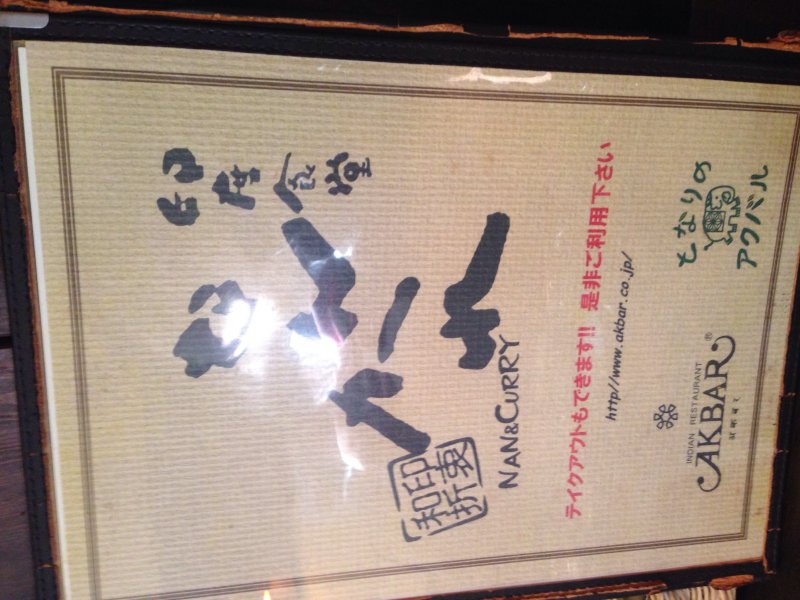 印度食堂
和印
折衷
NAN&CURRY
テイクアウトもできます!! 是非ご利用下さい
http//www.akbar.co.jp/
INDIAN RESTAURANT
AKBAR®
となりの
アクバル